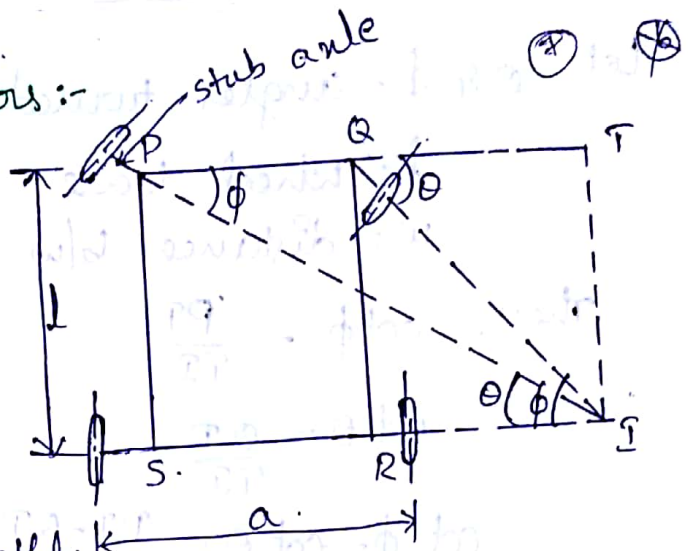 ors:-
stub axle
P
Q
T
ϕ
θ
l
θ ϕ
I
S.
R
a